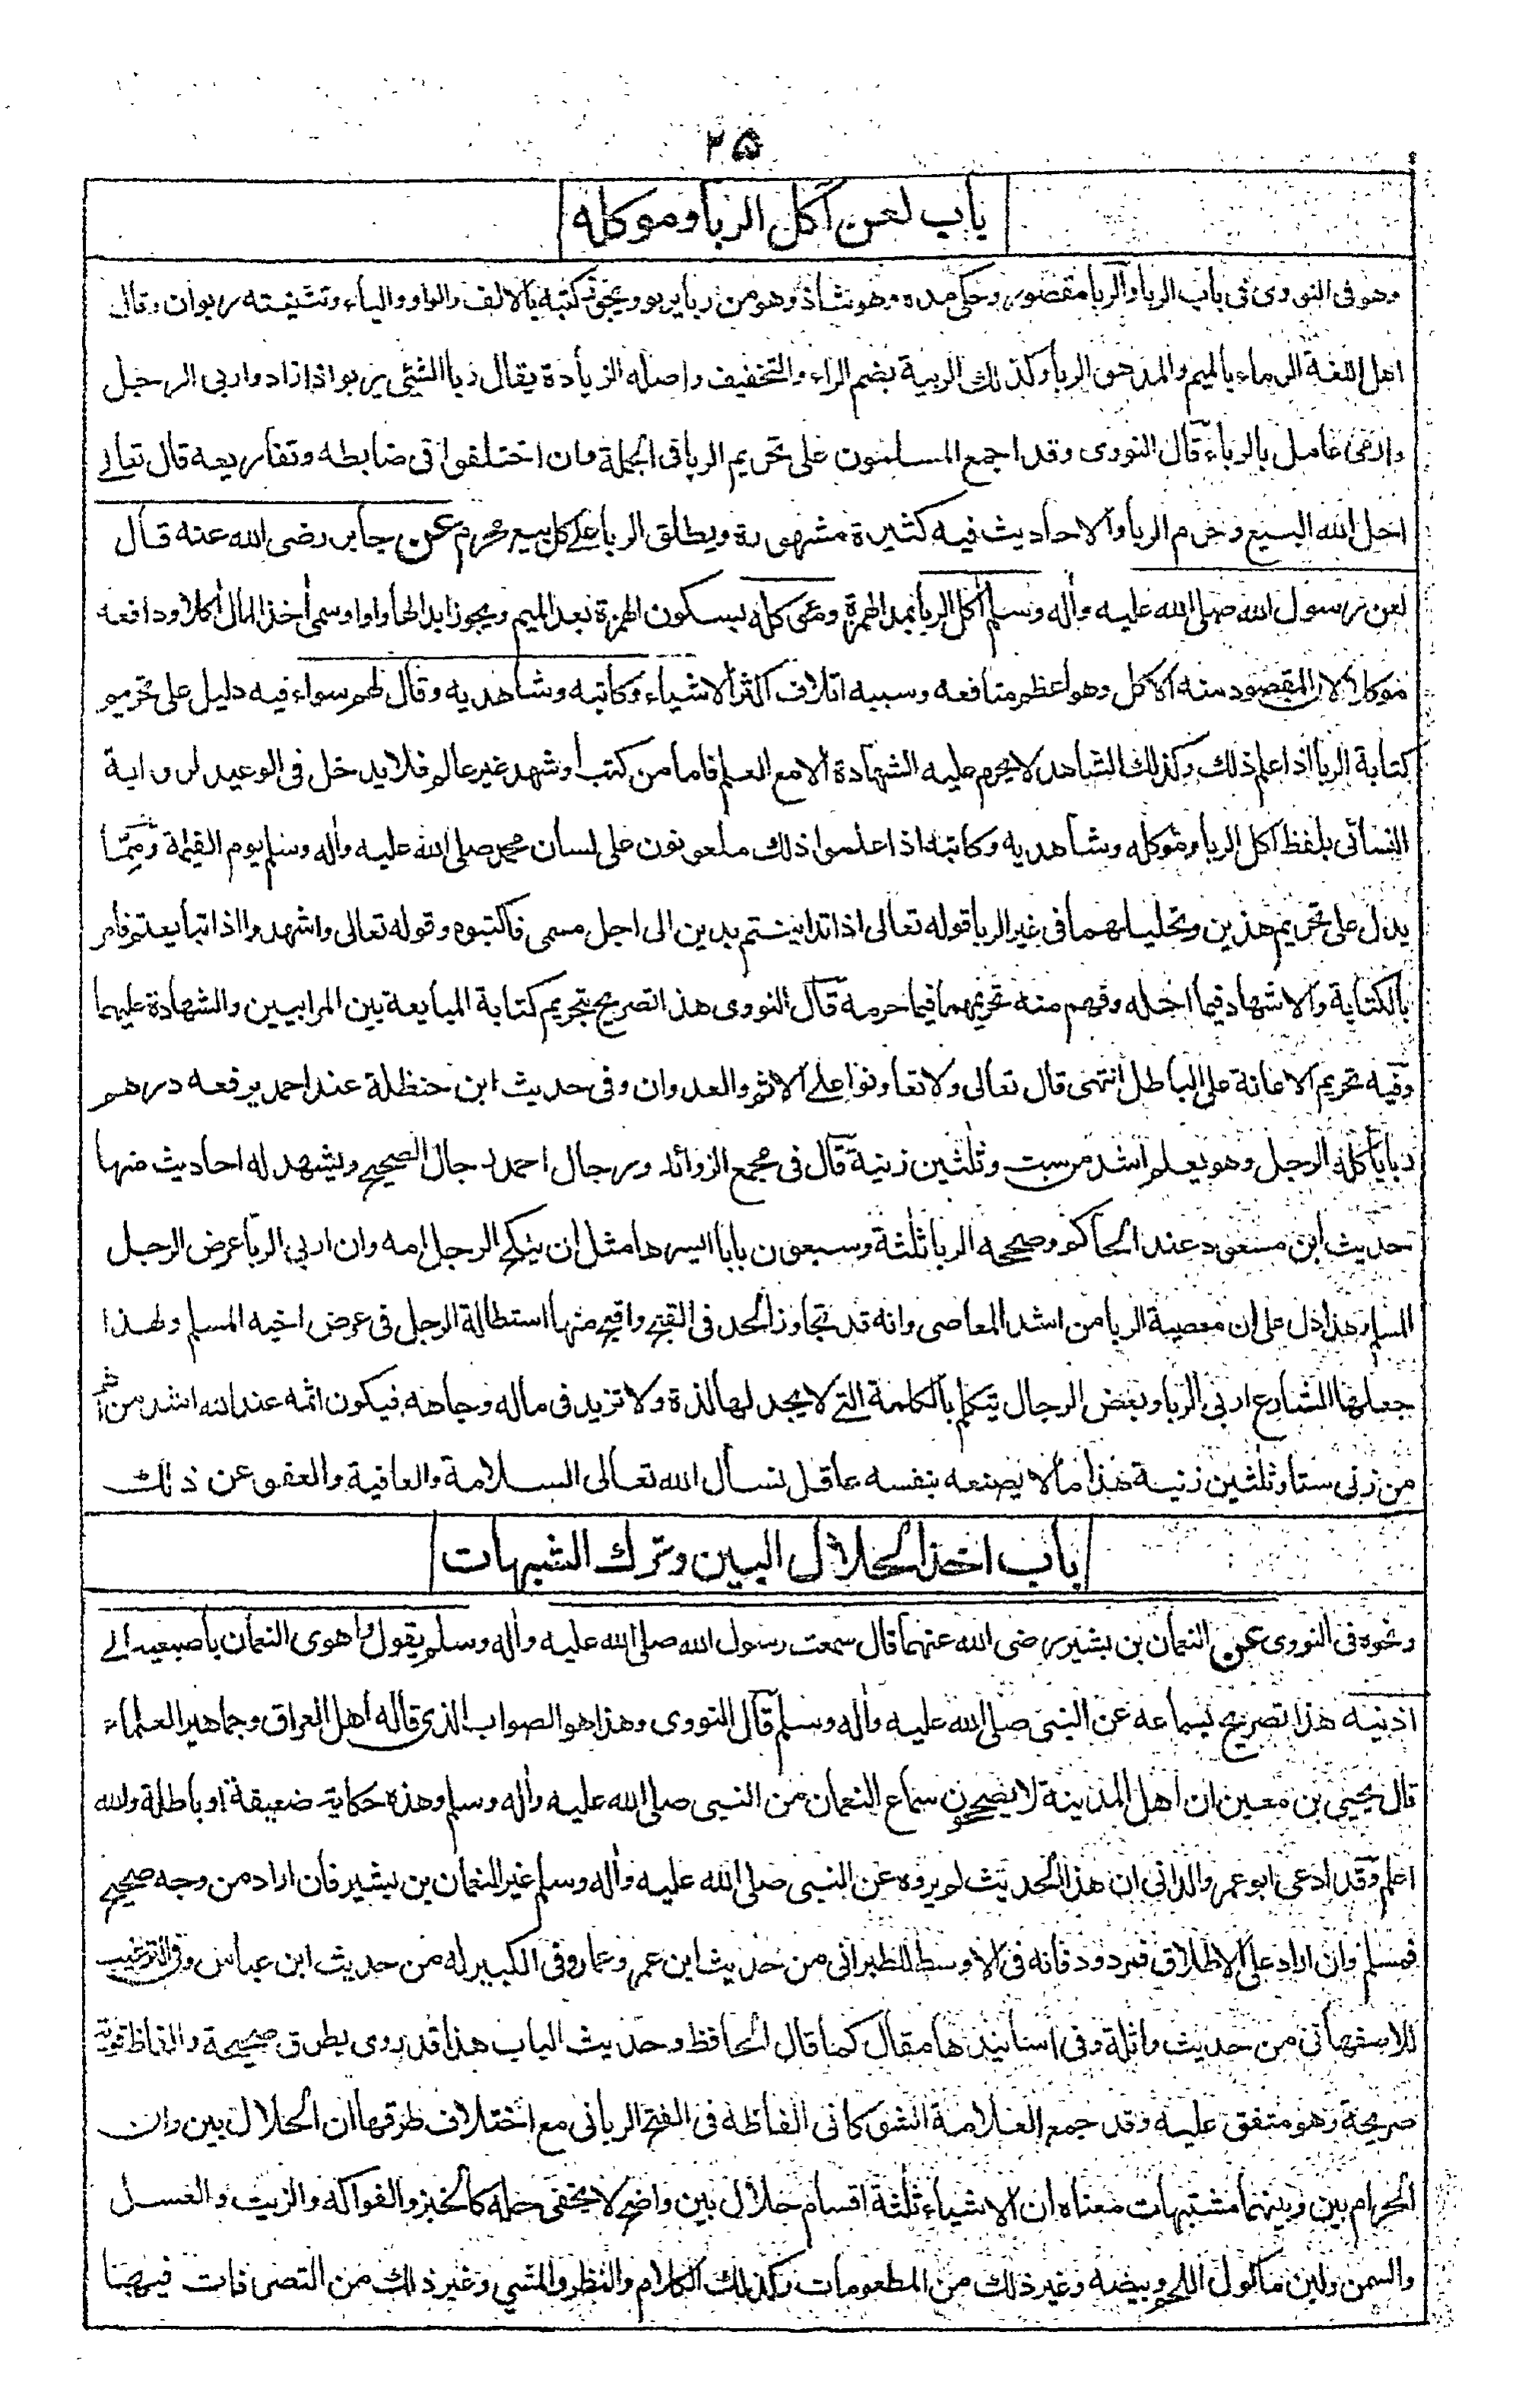 ٢٥
باب لعن آكل الربا وموكله
وهو في النووي في باب الربا والربا مقصور وحكي مده وهو شاذ وهو من ربا يربو ويجوز كتبه بالالف والواو والياء وتثنيته ربوان وقال
اهل اللغة الرماء بالميم والمد هو الربا وكذلك الربية بضم الراء والتخفيف واصله الزيادة يقال ربا الشئ يربو اذا زاد واربى الرجل
وارمى عامل بالرباء قال النووى وقد اجمع المسلمون على تحريم الربا فى الجملة وان اختلفوا فى ضابطه وتفاريعه قال تعالے
احل الله البيع وحرم الربا والاحاديث فيه كثيرة مشهورة ويطلق الربا علے كل بيع محرم عن جابر رضى الله عنه قال
لعن رسول الله صلى الله عليه واٰله وسلم اٰكل الربا بمد الهمزة وموكله بسكون الهمزة بعد الميم ويجوز ابدالها واوا وسمى اٰخذ المال اٰكلا ودافعه
موكلا لان المقصود منه الاكل وهو اعظم منافعه وسببه اتلاف اكثر الاشياء وكاتبه وشاهديه وقال هم سواء فيه دليل على تحريم
كتابة الربا اذا علم ذلك وكذلك الشاهد لا يحرم عليه الشهادة الا مع العلم فاما من كتب او شهد غير عالم فلا يدخل فى الوعيد لرواية
النسائى بلفظ اٰكل الربا وموكله وشاهديه وكاتبه اذا علموا ذلك ملعونون على لسان محمد صلى الله عليه واٰله وسلم يوم القيٰمة ومما
يدل على تحريم هذين وتحليلهما فى غير الربا قوله تعالى اذا تداينتم بدين الى اجل مسمى فاكتبوه وقوله تعالى واشهدوا اذا تبايعتم فامر
بالكتابة والاشهاد فيما احله وفهم منه تحريمهما فيما حرمه قال النووى هذا تصريح بتحريم كتابة المبايعة بين المرابيين والشهادة عليهما
وفيه تحريم الاعانة على الباطل انتهى قال تعالى ولا تعاونوا علے الاثم والعدوان وفى حديث ابن حنظلة عند احمد يرفعه درهم
ربا ياكله الرجل وهو يعلم اشد من ست وثلٰثين زنية قال فى مجمع الزوائد ورجال احمد رجال الصحيح ويشهد له احاديث منها
حديث ابن مسعود عند الحاكم وصححه الربا ثلٰثة وسبعون بابا ايسرها مثل ان ينكح الرجل امه وان اربى الربا عرض الرجل
المسلم وهذا دل على ان معصية الربا من اشد المعاصى وانه قد تجاوز الحد فى القبح واقبح منها استطالة الرجل فى عرض اخيه المسلم ولهذا
جعلها الشارع اربى الربا وبعض الرجال يتكلم بالكلمة التے لا يجد لها لذة ولا تزيد فى ماله وجاهه فيكون اثمه عند الله اشد من اثم
من زنى ستا وثلٰثين زنية هذا ما لا يصنعه بنفسه عاقل نسأل الله تعالى السلامة والعافية والعفو عن ذلك
باب اخذ الحلال البين وترك الشبهات
ونحوه فى النووى عن النعمان بن بشير رضى الله عنهما قال سمعت رسول الله صلى الله عليه واٰله وسلم يقول واهوى النعمان باصبعيه الى
اذنيه هذا تصريح بسماعه عن النبى صلى الله عليه واٰله وسلم قال النووى وهذا هو الصواب الذى قاله اهل العراق وجماهير العلماء
قال يحيى بن معين ان اهل المدينة لا يصححون سماع النعمان من النبى صلى الله عليه واٰله وسلم وهذه حكاية ضعيفة او باطلة والله
اعلم وقد ادعى ابو عمرو الدانى ان هذا الحديث لم يروه عن النبى صلى الله عليه واٰله وسلم غير النعمان بن بشير فان اراد من وجه صحيح
فمسلم وان اراد على الاطلاق فمردود فانه فى الاوسط للطبرانى من حديث ابن عمر وعمار وفى الكبير له من حديث ابن عباس وفى الترغيب
للاصفهانى من حديث واثلة وفى اسانيدها مقال كما قال الحافظ وحديث الباب هذا قد روى بطرق صحيحة والفاظ قوية
صريحة وهو متفق عليه وقد جمع العلامة الشوكانى الفاظه فى الفتح الربانى مع اختلاف طرقها ان الحلال بين وان
الحرام بين وبينهما مشتبهات معناه ان الاشياء ثلٰثة اقسام حلال بين واضح لا يخفى حله كالخبز والفواكه والزيت والعسل
والسمن ولبن ماكول اللحم وبيضه وغير ذلك من المطعومات وكذلك الكلام والنظر والمشي وغير ذلك من التصرفات فيهما